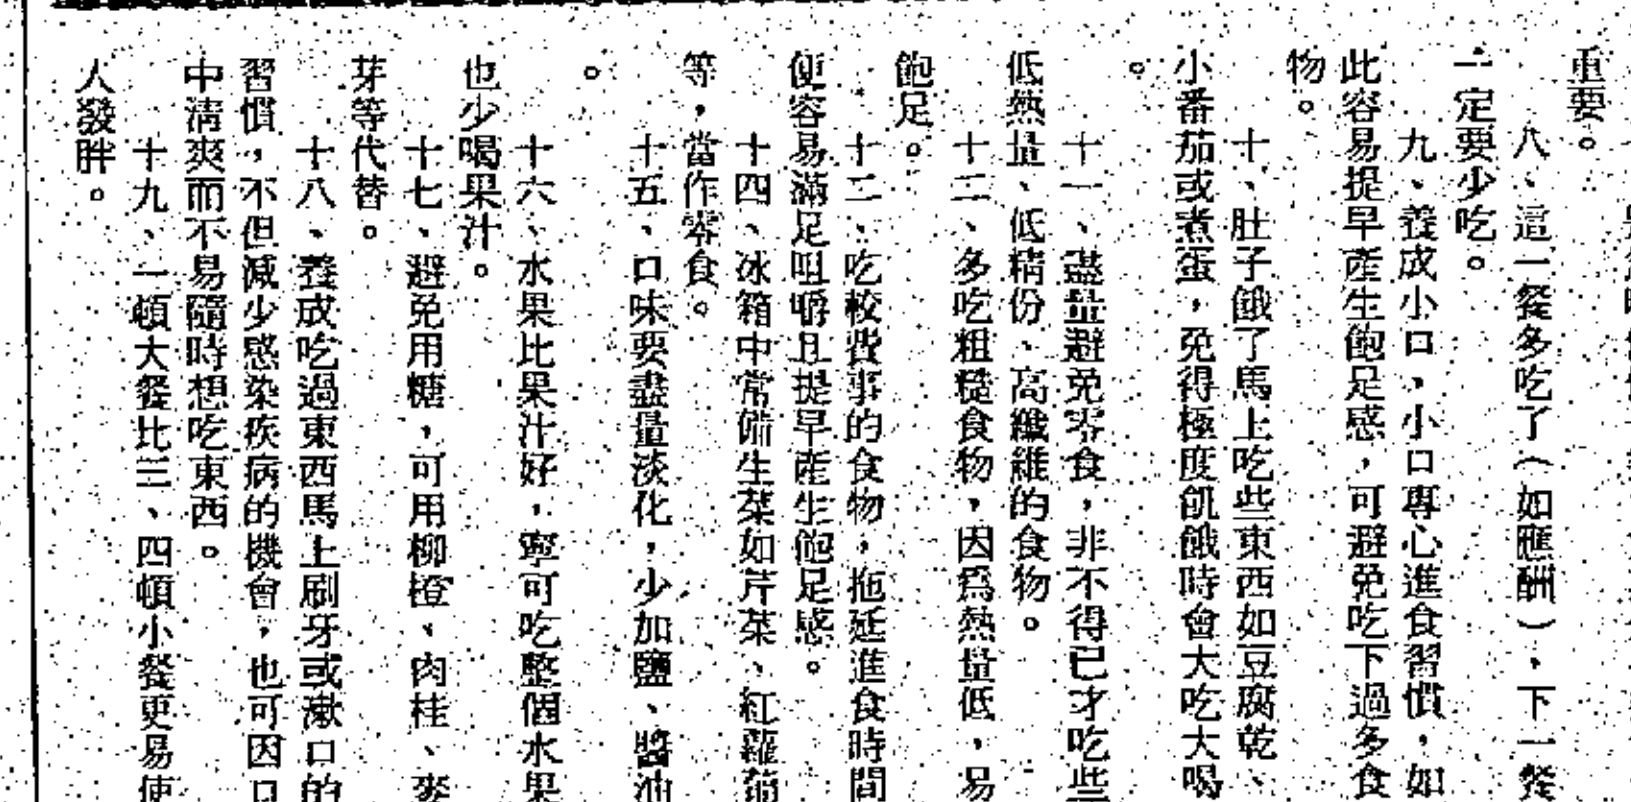 重要。
八、這一餐多吃了（如應酬），下一餐
一定要少吃。
九、養成小口，小口專心進食習慣，如
此容易提早產生飽足感，可避免吃下過多食
物。
十、肚子餓了馬上吃些東西如豆腐乾、
小番茄或煮蛋，免得極度飢餓時會大吃大喝
。
十一、盡量避免零食，非不得已才吃些
低熱量、低精份、高纖維的食物。
十二、多吃粗糙食物，因為熱量低，易
飽足。
十三、吃較費事的食物，拖延進食時間
便容易滿足咀嚼且提早產生飽足感。
十四、冰箱中常備生菜如芹菜、紅蘿蔔
等，當作零食。
十五、口味要盡量淡化，少加鹽、醬油
。
十六、水果比果汁好，寧可吃整個水果
也少喝果汁。
十七、避免用糖，可用柳橙、肉桂、麥
芽等代替。
十八、養成吃過東西馬上刷牙或漱口的
習慣，不但減少感染疾病的機會，也可因口
中清爽而不易隨時想吃東西。
十九、一頓大餐比三、四頓小餐更易使
人發胖。